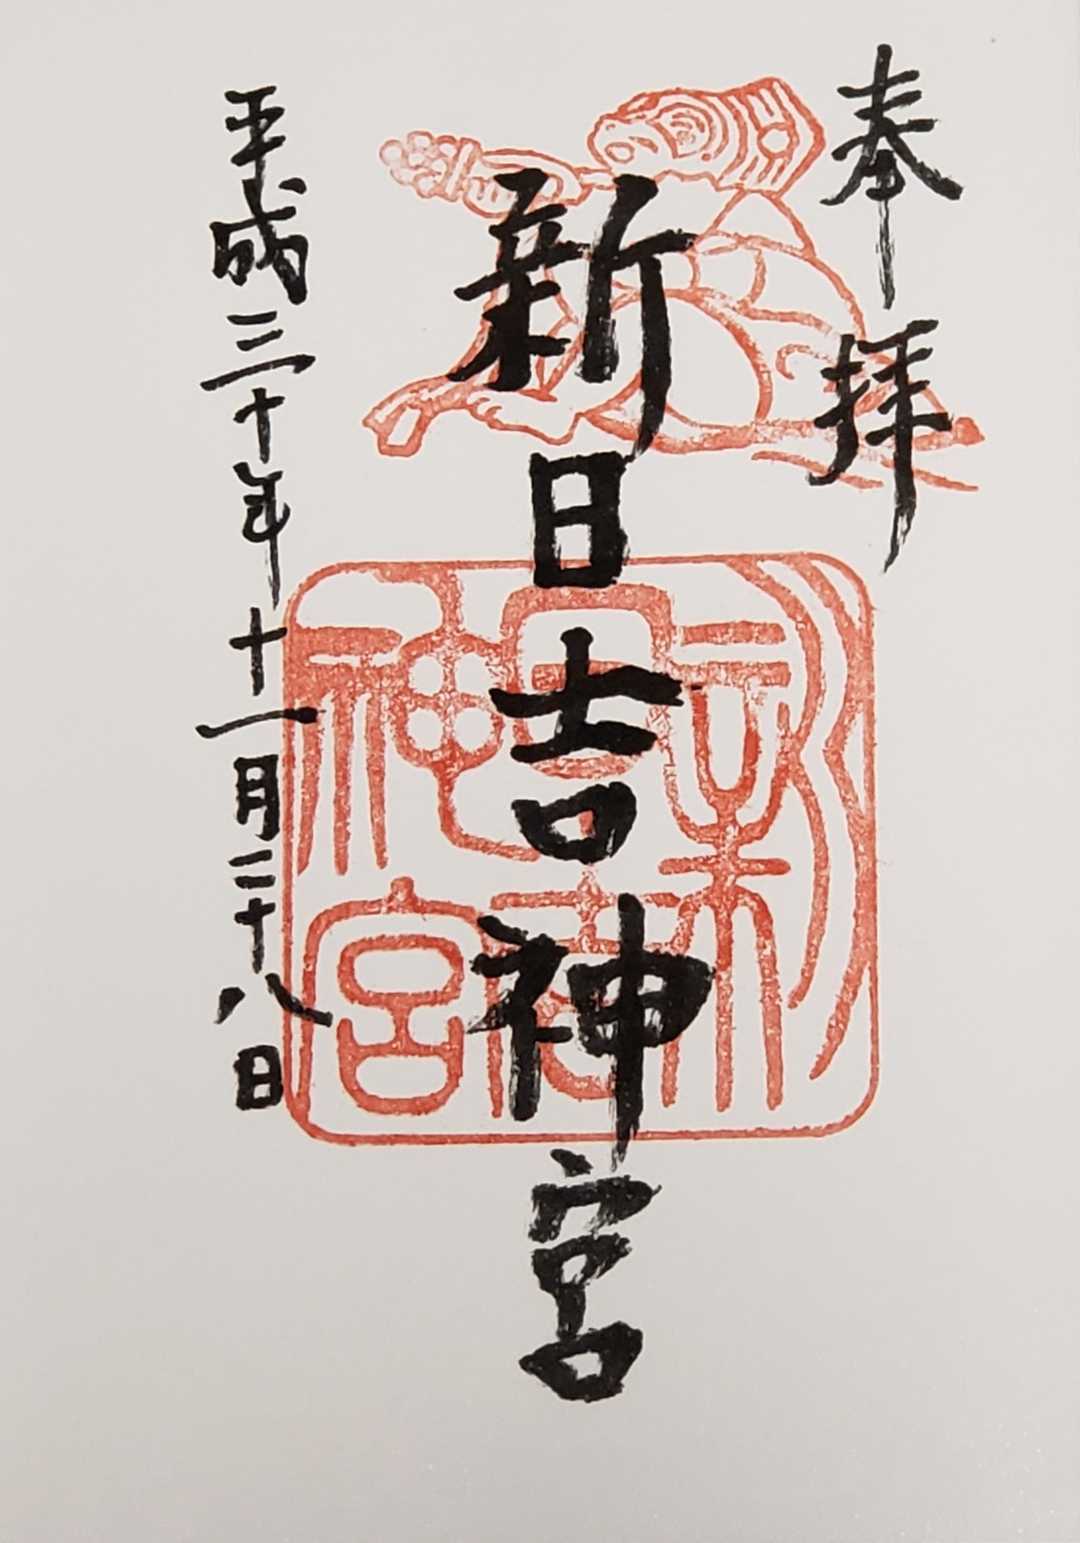 奉拝
新日吉神宮
平成三十年十一月二十八日
新日吉神宮